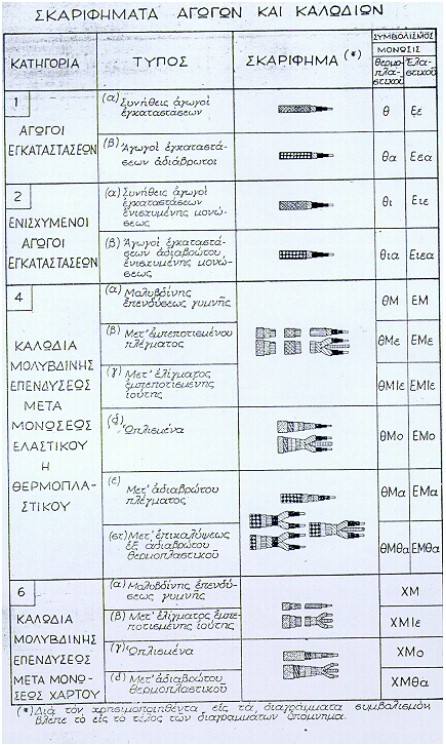 ΣΚΑΡΙΦΗΜΑΤΑ ΑΓΩΓΩΝ ΚΑΙ ΚΑΛΩΔΙΩΝ
ΚΑΤΗΓΟΡΙΑ
ΤΥΠΟΣ
ΣΚΑΡΙΦΗΜΑ (*)
ΣΥΜΒΟΛΙΣΜΟΣ
ΜΟΝΩΣΙΣ
θερμο-
πλα-
στικοῦ
Ἐλα-
στικοῦ
1
ΑΓΩΓΟΙ
ΕΓΚΑΤΑΣΤΑΣΕΩΝ
(α) Συνήθεις ἀγωγοὶ
ἐγκαταστάσεων
θ
Εε
(β) Ἀγωγοὶ ἐγκαταστά-
σεων ἀδιάβρωτοι
θα
Εεα
2
ΕΝΙΣΧΥΜΕΝΟΙ
ΑΓΩΓΟΙ
ΕΓΚΑΤΑΣΤΑΣΕΩΝ
(α) Συνήθεις ἀγωγοὶ
ἐγκαταστάσεων
ἐνισχυμένης μονώ-
σεως
θι
Ειε
(β) Ἀγωγοὶ ἐγκαταστά-
σεων ἀδιαβρώτου
ἐνισχυμένης μονώ-
σεως
θια
Ειεα
4
ΚΑΛΩΔΙΑ
ΜΟΛΥΒΔΙΝΗΣ
ΕΠΕΝΔΥΣΕΩΣ
ΜΕΤΑ
ΜΟΝΩΣΕΩΣ
ΕΛΑΣΤΙΚΟΥ
Η
ΘΕΡΜΟΠΛΑ-
ΣΤΙΚΟΥ
(α) Μολυβδίνης
ἐπενδύσεως γυμνῆς
θΜ
ΕΜ
(β) Μετ' ἐμπεποτισμένου
πλέγματος
θΜε
ΕΜε
(γ) Μετ' ἑλίγματος
ἐμπεποτισμένης
ἰούτης
θΜΙε
ΕΜΙε
(d) Ὡπλισμένα
θΜο
ΕΜο
(ε) Μετ' ἀδιαβρώτου
πλέγματος
θΜα
ΕΜα
(στ) Μετ' ἐπικαλύψεως
ἐξ ἀδιαβρώτου
θερμοπλαστικοῦ
θΜθα
ΕΜθα
6
ΚΑΛΩΔΙΑ
ΜΟΛΥΒΔΙΝΗΣ
ΕΠΕΝΔΥΣΕΩΣ
ΜΕΤΑ ΜΟΝΩ-
ΣΕΩΣ ΧΑΡΤΟΥ
(α) Μολυβδίνης ἐπενδύ-
σεως γυμνῆς
ΧΜ
(β) Μετ' ἑλίγματος ἐμπε-
ποτισμένης ἰούτης
ΧΜΙε
(γ) Ὡπλισμένα
ΧΜο
(d) Μετ' ἀδιαβρώτου
θερμοπλαστικοῦ
ΧΜθα
(*) Διὰ τὸν χρησιμοποιηθέντα εἰς τὰ διαγράμματα συμβολισμὸν
βλέπε τὸ εἰς τὸ τέλος τῶν διαγραμμάτων ὑπόμνημα.